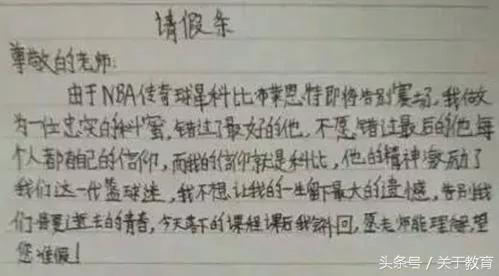 请假条
尊敬的老师:
由于NBA传奇球星科比布莱恩特即将告别赛场,我做
为一位忠实的科蜜,错过了最好的他,不愿错过最后的他,每
个人都有自己的信仰,而我的信仰就是科比,他的精神激励了
我们这一代篮球迷,我不想让我的一生留下最大的遗憾,告别我
们逝去的青春,今天落下的课程课后我会补回,愿老师能理解,望
您准假!
头条号 / 关于教育